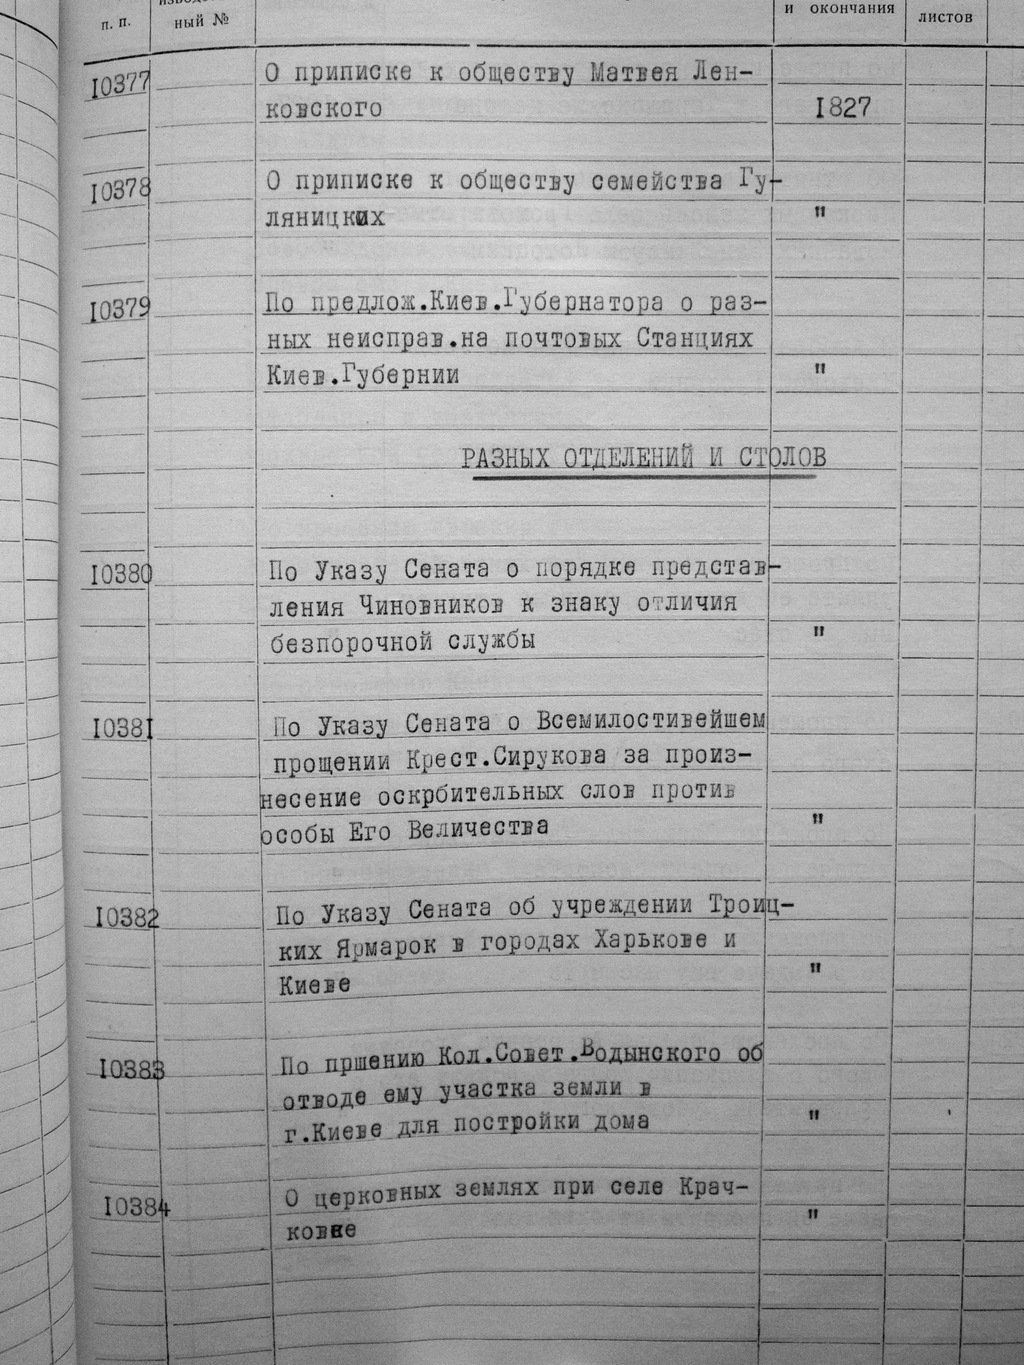 п. п.
ный №
и окончания
листов
10377
О приписке к обществу Матвея Лен-
ковского
1827
10378
О приписке к обществу семейства Гу-
ляницких
"
10379
По предлож.Киев.Губернатора о раз-
ных неисправ.на почтовых Станциях
Киев.Губернии
"
РАЗНЫХ ОТДЕЛЕНИЙ И СТОЛОВ
10380
По Указу Сената о порядке представ-
ления Чиновников к знаку отличия
безпорочной службы
"
10381
По Указу Сената о Всемилостивейшем
прощении Крест.Сирукова за произ-
несение оскрбительных слов против
особы Его Величества
"
10382
По Указу Сената об учреждении Троиц-
ких Ярмарок в городах Харькове и
Киеве
"
10383
По пршению Кол.Совет.Водынского об
отводе ему участка земли в
г.Киеве для постройки дома
"
10384
О церковных землях при селе Крач-
ковке
"